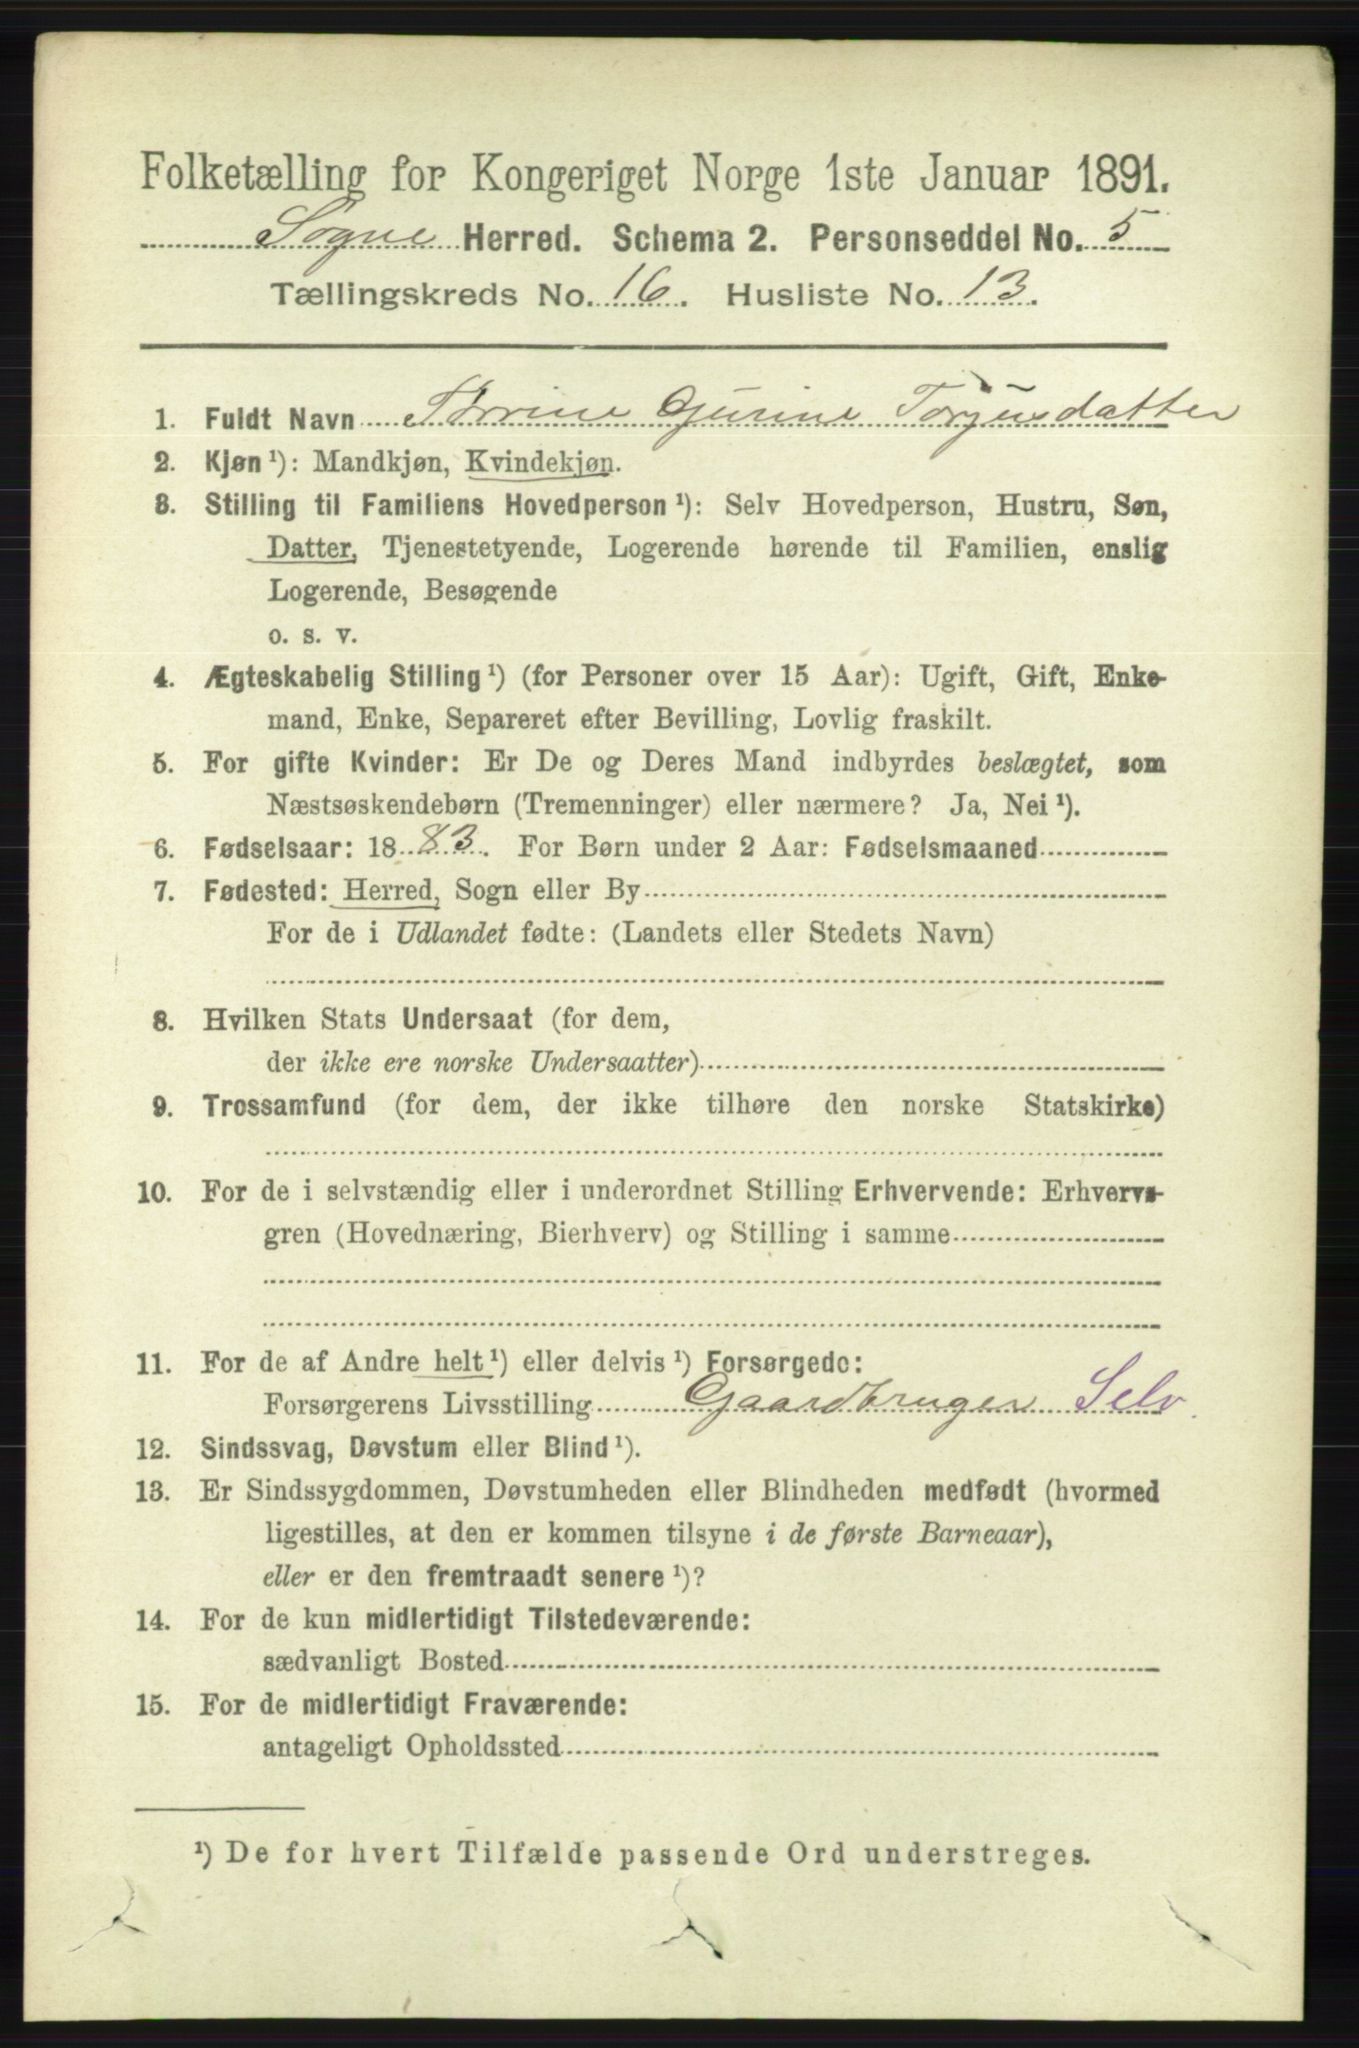 Folketælling for Kongeriget Norge 1ste Januar 1891.
Søgne Herred. Schema 2. Personseddel No. 5
Tællingskreds No. 16. Husliste No. 13.
1. Fuldt Navn Torine Gurine Torjusdatter
2. Kjøn ¹): Mandkjøn, Kvindekjøn.
3. Stilling til Familiens Hovedperson ¹): Selv Hovedperson, Hustru, Søn,
Datter, Tjenestetyende, Logerende hørende til Familien, enslig
Logerende, Besøgende
o. s. v.
4. Ægteskabelig Stilling ¹) (for Personer over 15 Aar): Ugift, Gift, Enke-
mand, Enke, Separeret efter Bevilling, Lovlig fraskilt.
5. For gifte Kvinder: Er De og Deres Mand indbyrdes beslægtet, som
Næstsøskendebørn (Tremenninger) eller nærmere? Ja, Nei ¹).
6. Fødselsaar: 1883. For Børn under 2 Aar: Fødselsmaaned
7. Fødested: Herred, Sogn eller By
For de i Udlandet fødte: (Landets eller Stedets Navn)
8. Hvilken Stats Undersaat (for dem,
der ikke ere norske Undersaatter)
9. Trossamfund (for dem, der ikke tilhøre den norske Statskirke)
10. For de i selvstændig eller i underordnet Stilling Erhvervende: Erhvervs-
gren (Hovednæring, Bierhverv) og Stilling i samme
11. For de af Andre helt ¹) eller delvis ¹) Forsørgede:
Forsørgerens Livsstilling Gaardbruger Selv.
12. Sindssvag, Døvstum eller Blind ¹).
13. Er Sindssygdommen, Døvstumheden eller Blindheden medfødt (hvormed
ligestilles, at den er kommen tilsyne i de første Barneaar),
eller er den fremtraadt senere ¹)?
14. For de kun midlertidigt Tilstedeværende:
sædvanligt Bosted
15. For de midlertidigt Fraværende:
antageligt Opholdssted
¹) De for hvert Tilfælde passende Ord understreges.